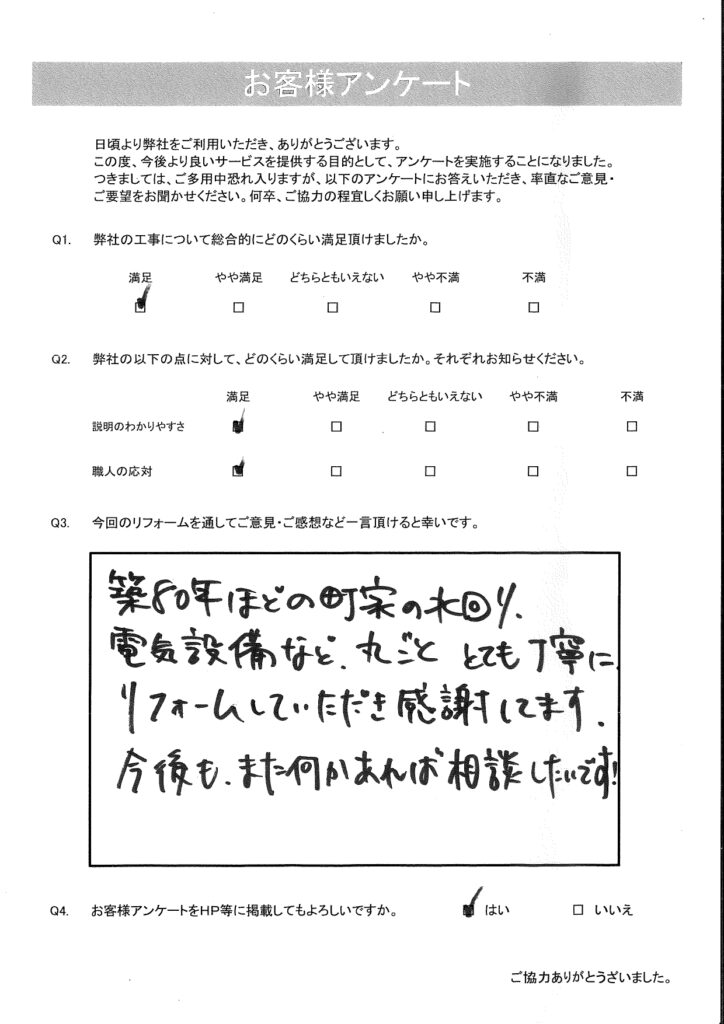 お客様アンケート
日頃より弊社をご利用いただき、ありがとうございます。
この度、今後より良いサービスを提供する目的として、アンケートを実施することになりました。
つきましては、ご多用中恐れ入りますが、以下のアンケートにお答えいただき、率直なご意見・
ご要望をお聞かせください。何卒、ご協力の程宜しくお願い申し上げます。
Q1. 弊社の工事について総合的にどのくらい満足頂けましたか。
満足 やや満足 どちらともいえない やや不満 不満
Q2. 弊社の以下の点に対して、どのくらい満足して頂けましたか。それぞれお知らせください。
満足 やや満足 どちらともいえない やや不満 不満
説明のわかりやすさ
職人の応対
Q3. 今回のリフォームを通してご意見・ご感想など一言頂けると幸いです。
築80年ほどの町家の水回り、
電気設備など、丸ごと とても丁寧に
リフォームしていただき感謝してます。
今後も、また何かあれば相談したいです!
Q4. お客様アンケートをHP等に掲載してもよろしいですか。 はい いいえ
ご協力ありがとうざいました。